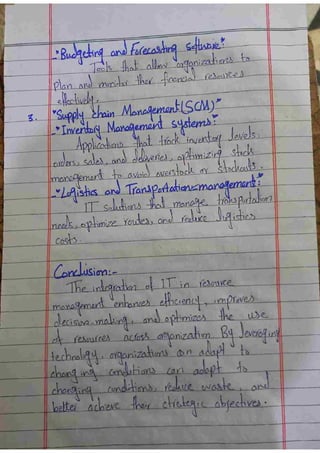 - "Budgeting and Forecasting Software:"
Tools that allow organizations to
plan and monitor their financial resources
effectively.
3. "Supply Chain Management (SCM)"
- "Inventory Management systems:"
Applications that track inventory levels,
orders, sales, and deliveries, optimizing stock
management to avoid overstock or stockouts.
- "Logistics and Transportation management:"
IT solutions that manage transportation
needs, optimize routes, and reduce logistics
costs.
Conclusion:-
The integration of IT in resource
management enhances efficiency, improves
decision making, and optimizes the use
of resources across organization. By leveraging
technology, organizations can adapt to
changing conditions can adopt to
changing conditions, reduce waste, and
better achieve their strategic objectives.